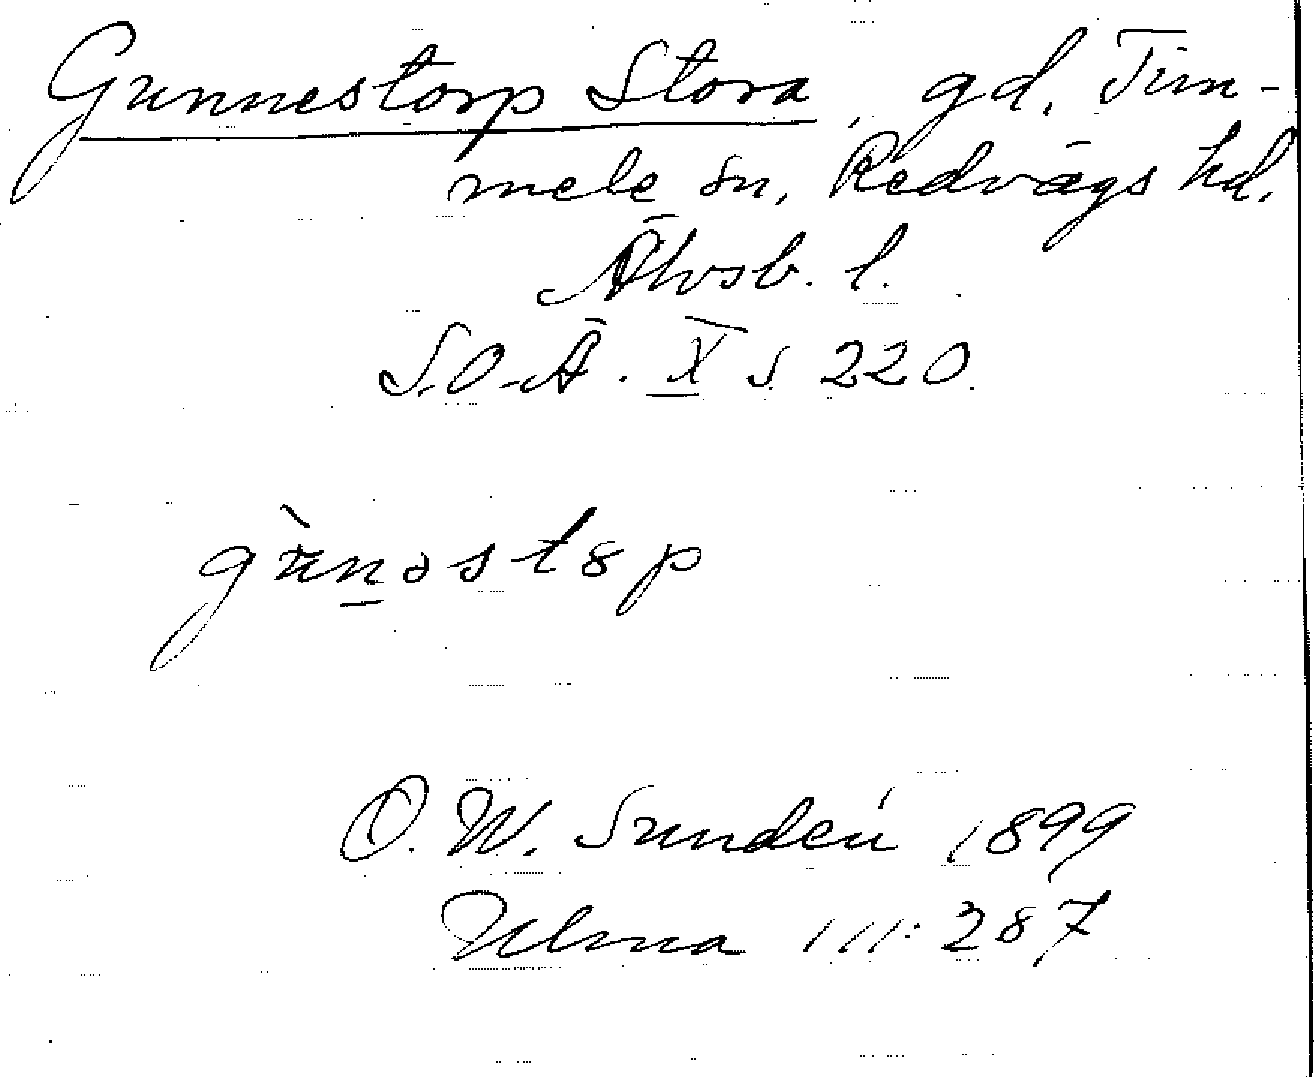 Gunnestorp Stora, gd, Tim-
mele sn, Redvägs hd.
Älvsb. l.
S.O.Ä. X s 220.
gùnəstəp
O. W. Sundén 1899
Ulma 111:287